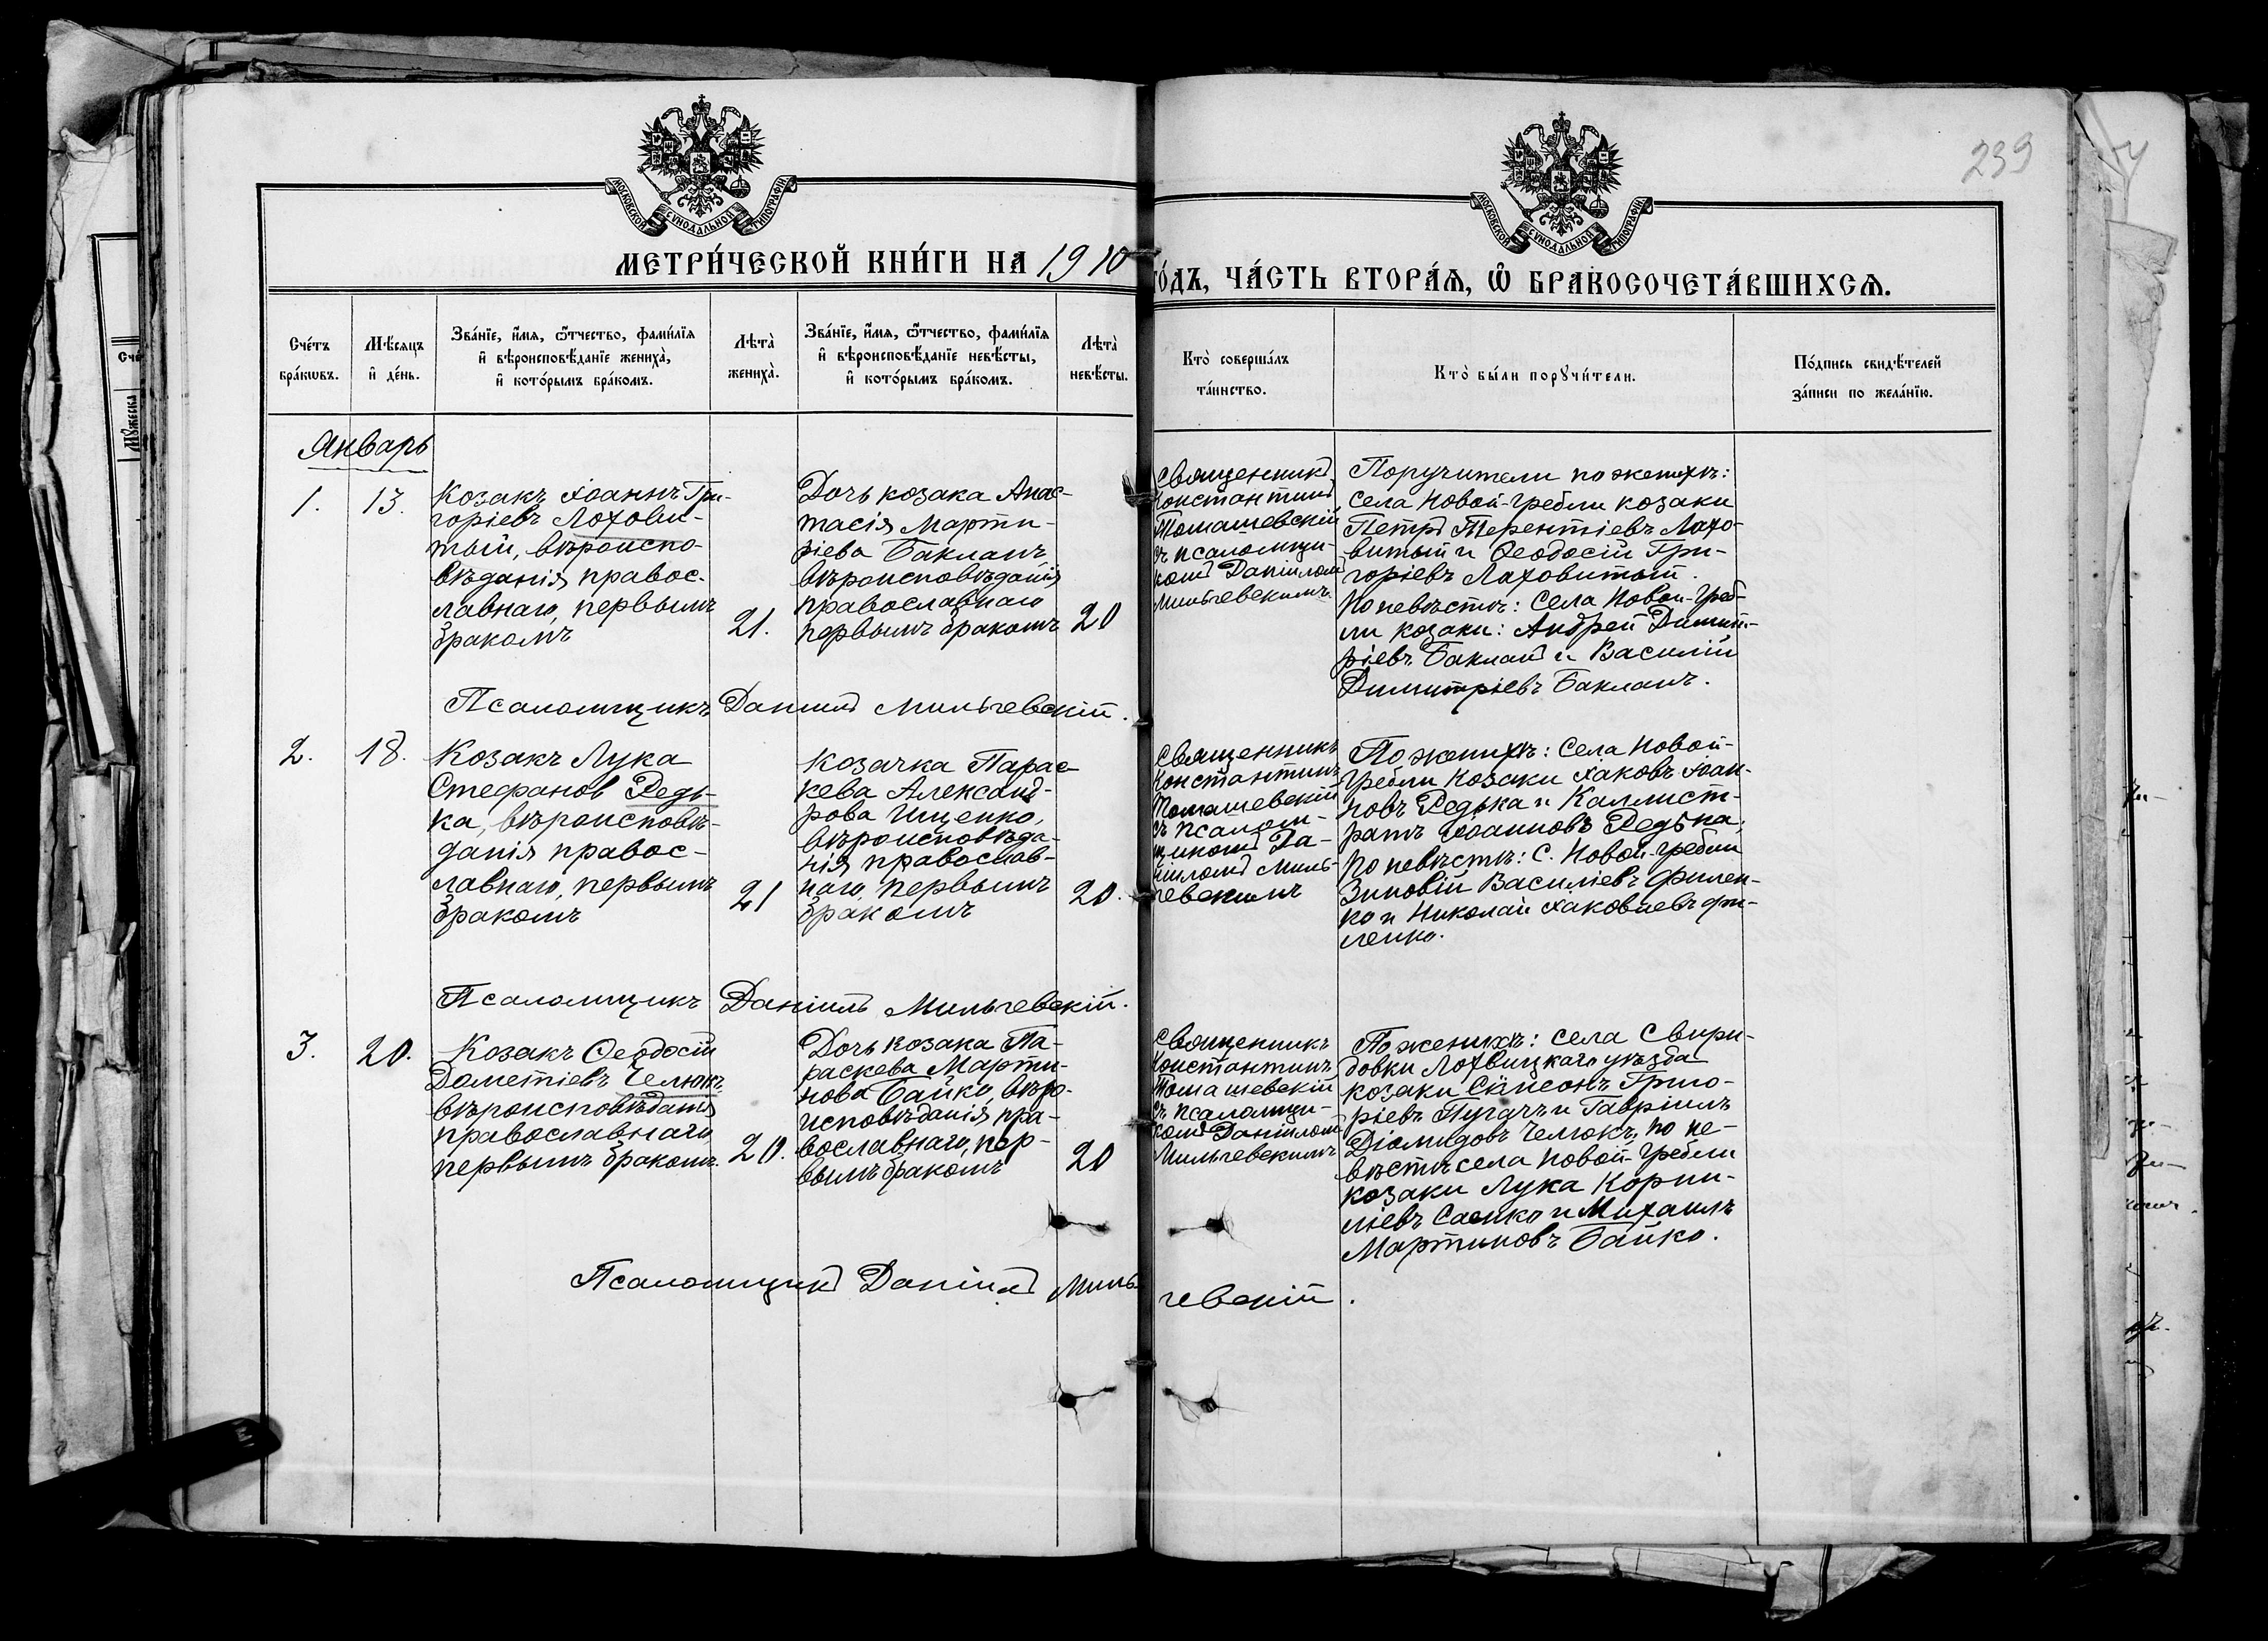 239
МОСКОВСКОЙ СУНОДАЛЬНОЙ ТИПОГРАФІИ
МОСКОВСКОЙ СУНОДАЛЬНОЙ ТИПОГРАФІИ
МЕТРИ́ЧЕСКОЙ КНИ́ГИ НА 1910
ГО́ДЪ, ЧА́СТЬ ВТОРА́Я, Ѽ БРАКОСОЧЕТА́ВШИХСЯ.
Сче́тъ
бра́кѡвъ.
Мѣ́сяцъ
и҆ де́нь.
Зва́нїе, и҆́мя, ѻ҆́тчество, фами́лїя
и҆ вѣроисповѣ́данїе жениха̀,
и҆ кото́рымъ бра́комъ.
Лѣта̀
жениха̀.
Зва́нїе, и҆́мя, ѻ҆́тчество, фами́лїя
и҆ вѣроисповѣ́данїе невѣ́сты,
и҆ кото́рымъ бра́комъ.
Лѣта̀
невѣ́сты.
Кто̀ соверша́лъ
та́инство.
Кто̀ бы́ли порꙋчи́тели.
По́дпись свидѣ́телей
за́писи по жела́нїю.
Январь
1.
13.
Козакъ Іоаннъ Гри-
горіевъ Лохови-
тый, вѣроиспо-
вѣданія правос-
лавнаго, первымъ
бракомъ
21.
Дочь козака Анас-
тасія Марти-
ріева Бакланъ
вѣроисповѣданія
православнаго
первымъ бракомъ
20
Священникъ
Константинъ
Томашевскій
съ псаломщи-
комъ Даніиломъ
Мильчевскимъ
Поручители по женихѣ:
села Новой-Гребли козаки
Петръ Терентіевъ Лохо-
витый и Ѳеодосій Гри-
горіевъ Лоховитый.
По невѣстѣ: села Новой-Греб-
ли козаки: Андрей Димит-
ріевъ Бакланъ и Василій
Димитріевъ Бакланъ.
Псаломщикъ Даніилъ Мильчевскій.
2.
18.
Козакъ Лука
Стефановъ Редь-
ка, вѣроисповѣ-
данія правос-
лавнаго, первымъ
бракомъ
21
Козачка Парас-
кева Александ-
рова Ищенко,
вѣроисповѣда-
нія православ-
наго, первымъ
бракомъ
20.
Священникъ
Константинъ
Томашевскій
съ псалом-
щикомъ Да-
ніиломъ Миль-
чевскимъ
По женихѣ: села Новой-
Гребли козаки Іаковъ Іоан-
новъ Редька и Каллист-
ратъ Іоанновъ Редька;
по невѣстѣ: с. Новой-Гребли
Зиновій Василіевъ Филен-
ко и Николай Іаковлевъ Фи-
ленко.
Псаломщикъ Даніилъ Мильчевскій.
3.
20.
Козакъ Ѳеодосій
Дометіевъ Челюкъ,
вѣроисповѣданія
православнаго
первымъ бракомъ.
20.
Дочь козака Па-
раскева Марти-
нова Байко, вѣро-
исповѣданія пра-
вославнаго, пер-
вымъ бракомъ
20
Священникъ
Константинъ
Томашевскій
съ псаломщи-
комъ Даніиломъ
Мильчевскимъ
По женихѣ: села Свири-
довки Лохвицкаго уѣзда
козаки Сѵмеонъ Григо-
ріевъ Пугачъ и Гавріилъ
Діомидовъ Челюкъ; по не-
вѣстѣ села Новой-Гребли
козаки Лука Корни-
ліевъ Саенко и Михаилъ
Мартиновъ Байко.
Псаломщикъ Даніилъ Мильчевскій.